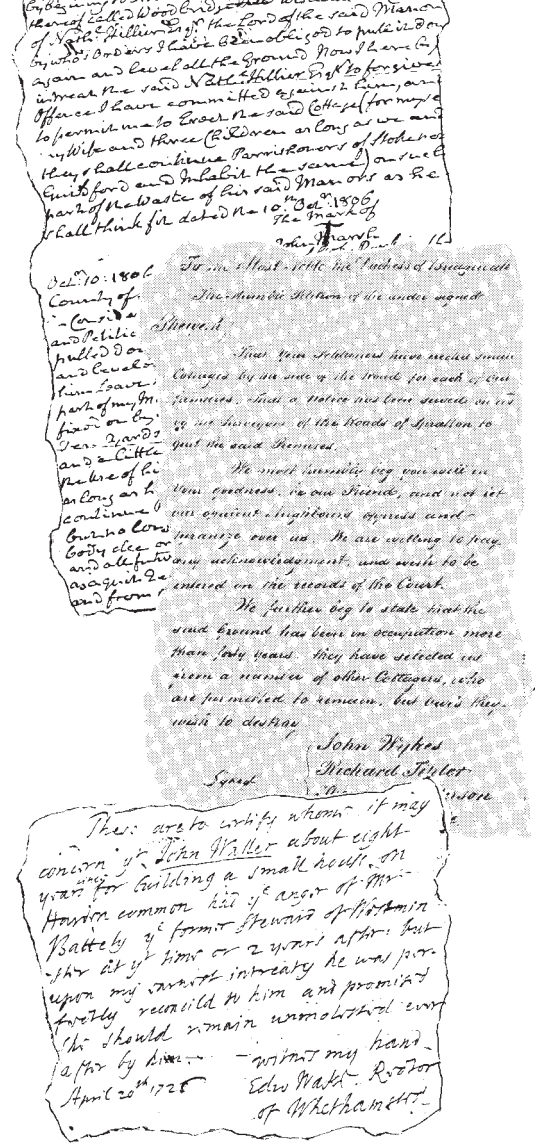 thereof called Wood bridge
of Nathl. Hillier Esqr. the Lord of the said Manor
by whose Orders I have been obliged to pull it down
again and level all the Ground Now I here by
intreat the said Nathl. Hillier Esqr. to forgive
Offence I have committed against him, and
to permit me to Erect the said Cottage (for myse
my Wife and three Children as long as we and
they shall continue Parrishoners of Stoke
Guildford and Inhabit the same) on such
part of the Waste of his said Manors as he
shall think fit dated the 10th Octr. 1806
The Mark of
John Marsh
Octr. 10: 1806
County of
Conside
and Petitio
pulled dow
and level
him Leave
part of my M
fix'd on by
and a little
the use of hi
as long as h
continue
but no lon
body else or
and all futu
and from
To the Most Noble the Duchess of
The Humble Petition of the under signed
Sheweth
That your Petitioners have erected small
Cottages by the side of the Road for each of our
families, that a Notice has been served on us
by the Surveyors of the Roads of Spratton to
quit the said Premises.
We most humbly beg you will in
your goodness, be our Friend, and not let
our opulent Neighbours oppress and
tyranize over us. We are willing to pay
any acknowledgment, and wish to be
entered on the records of the Court.
We further beg to state that the
said Ground has been in occupation more
than forty years. they have selected us
from a number of other Cottagers, who
are permitted to remain, but our's they
wish to destroy
Signed
John Wykes
Richard Taylor
erson
These are to certify whome it may
concern yt John Waller about eight
years since for building a small house on
Harden common had ye anger of Mr.
Battely ye former Steward of Westmin
ster at yt time or 2 years after: but
upon my earnest intreaty he was per-
fectly reconcild to him and promised
he should remain unmolested ever
after by him witnes my hand
April 20th 172 Edw Rector
of Whethamsted